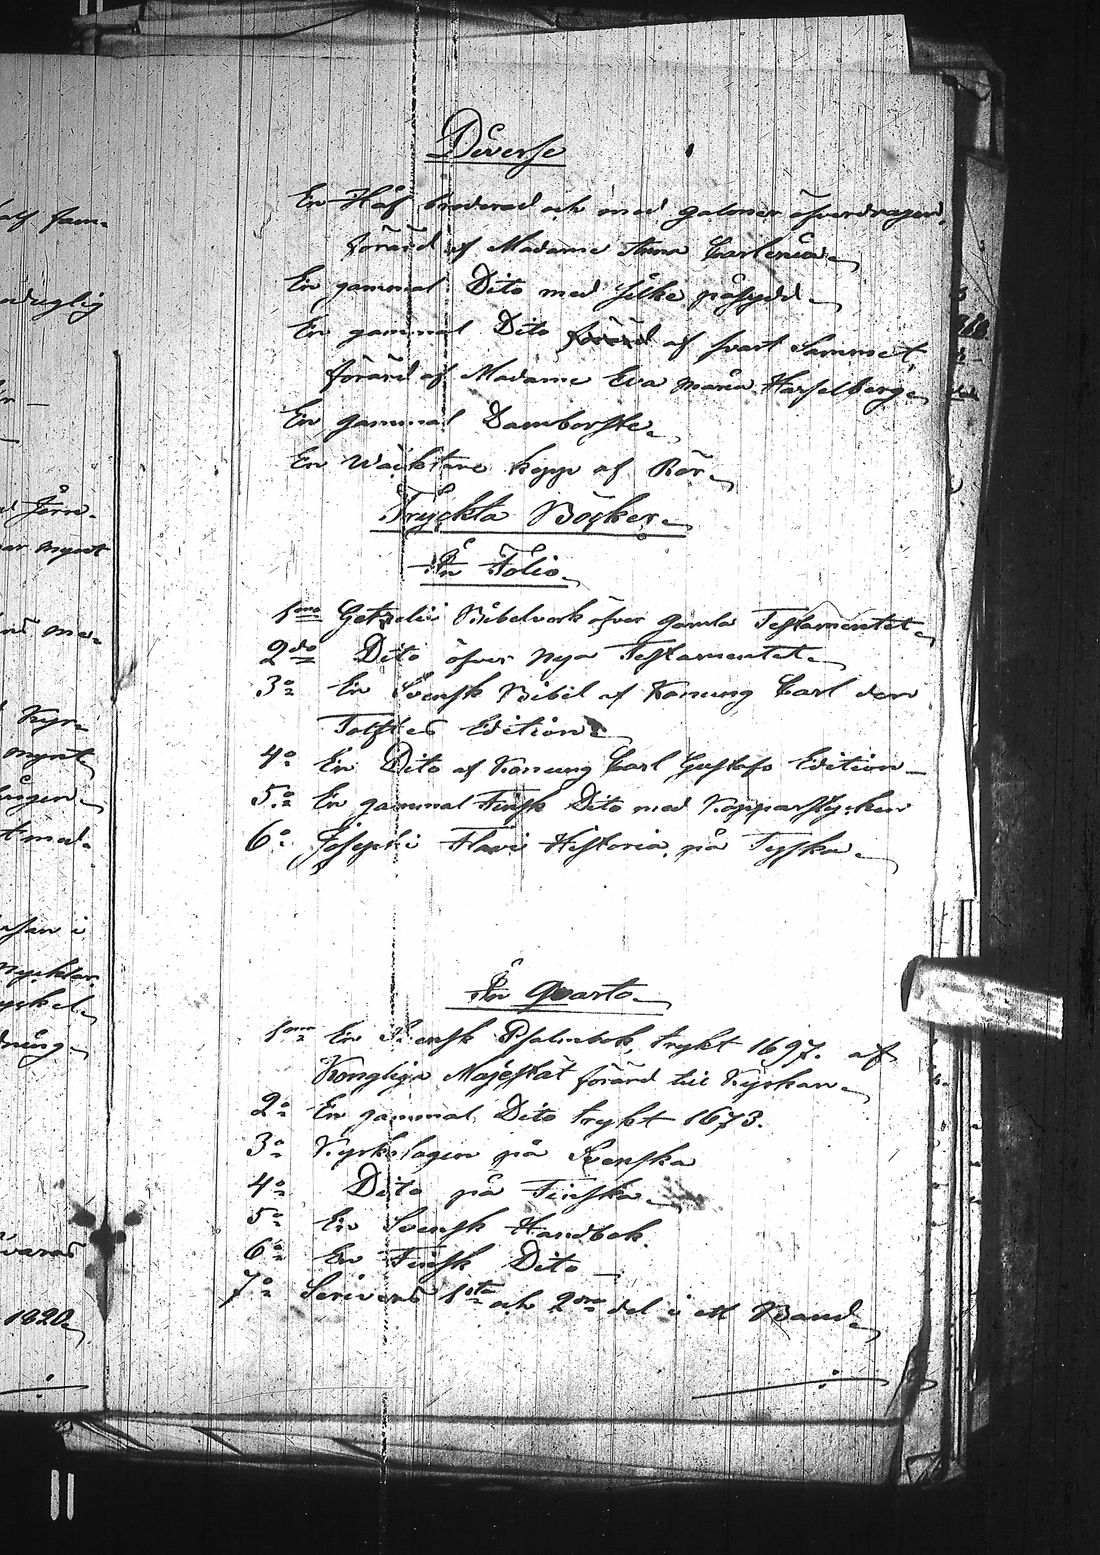 Diverse
En Håf broderad och med galoner öfverdragen,
förärd af Madame Anna Carlenia
En gammal Dito med silke påsydd
En gammal Dito af svart Sammet,
förärd af Madame Eva Maria Hasselberg
En gammal Damborste
En Wäcktare kepp af Rör
Tryckta Böcker
In Folio
1mo Getzelii Bibelverk öfver Gamla Testamentet
2do Dito öfver Nya Testamentet
3o En Svensk Bibel af Konung Carl den
Tolftes Edition
4o En Dito af Konung Carl Gustafs Edition
5o En gammal Finsk Dito med Kopparstycken
6o Josephi Flavi Historia på Tyska
In Quarto
1mo En Svensk Psalmbok, trykt 1697. af
Konglige Majestät förärd till Kyrkan
2o En gammal Dito trykt 1673.
3o Kyrkolagen på Svenska
4o Dito på Finska
5o En Svensk Handbok.
6o En Finsk Dito
7o Scrivers 1sta och 2dra del i ett Band
half
oduglig
mynt
Kyr
mynt
ungen
t med
Nycklar
1820
11